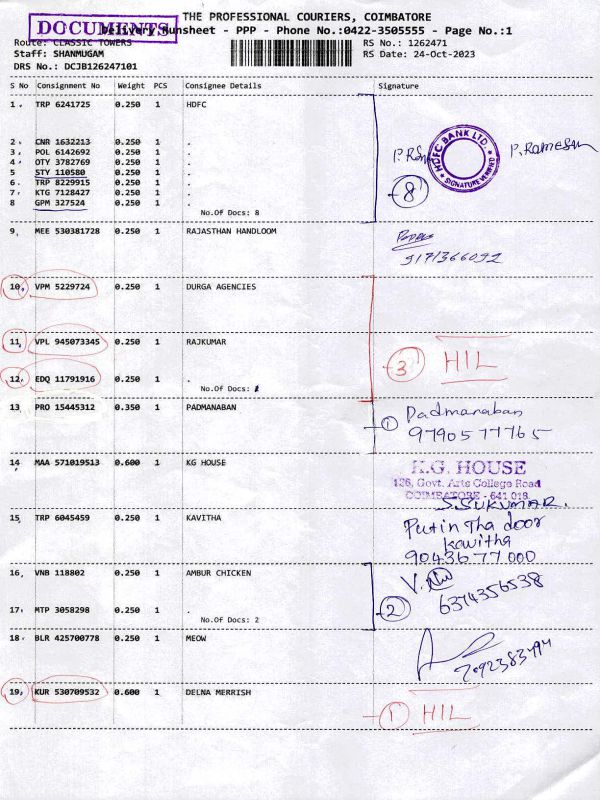 THE PROFESSIONAL COURIERS, COIMBATORE
DOCUMENTS
Delivery Runsheet - PPP - Phone No.:0422-3505555 - Page No.:1
Route: CLASSIC TOWERS
RS No.: 1262471
Staff: SHANMUGAM
RS Date: 24-Oct-2023
DRS No.: DCJB126247101
S No Consignment No Weight PCS Consignee Details Signature
1 TRP 6241725 0.250 1 HDFC
2 CNR 1632213 0.250 1 .
3 POL 6142692 0.250 1 .
4 OTY 3782769 0.250 1 .
5 STY 110580 0.250 1 .
6 TRP 8229915 0.250 1 .
7 KTG 7128427 0.250 1 .
8 GPM 327524 0.250 1 .
No.Of Docs: 8
8
HDFC BANK LTD.
SIGNATURE VERIFIED
P. Ramesh
9 MEE 530381728 0.250 1 RAJASTHAN HANDLOOM
9171366092
10 VPM 5229724 0.250 1 DURGA AGENCIES
11 VPL 945073345 0.250 1 RAJKUMAR
3 HIL
12 EDQ 11791916 0.250 1 .
No.Of Docs:
13 PRO 15445312 0.350 1 PADMANABAN
1 Padmanaban
9790577765
14 MAA 571019513 0.600 1 KG HOUSE
K.G. HOUSE
126, Govt. Arts College Road
COIMBATORE - 641 018.
S.SUKUMAR.
15 TRP 6045459 0.250 1 KAVITHA
Put in Tha door
kawitha
9043677000
16 VNB 118802 0.250 1 AMBUR CHICKEN
17 MTP 3058298 0.250 1 .
No.Of Docs: 2
2
6374356538
18 BLR 425700778 0.250 1 MEOW
7092383494
19 KUR 530709532 0.600 1 DELNA MERRISH
1 HIL